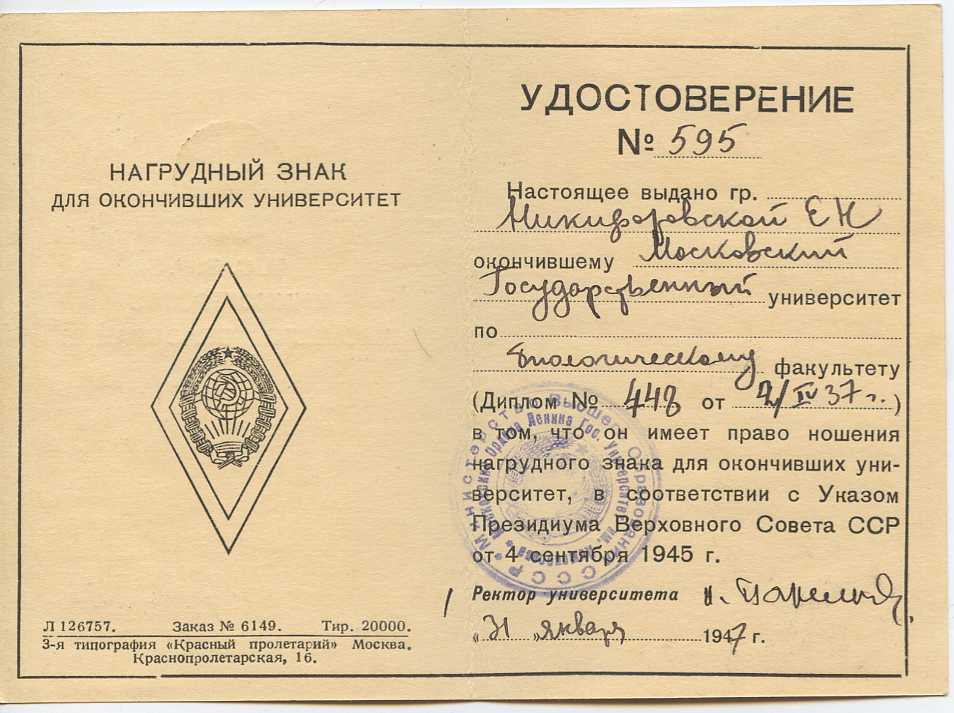 НАГРУДНЫЙ ЗНАК
ДЛЯ ОКОНЧИВШИХ УНИВЕРСИТЕТ
Л 126757. Заказ № 6149. Тир. 20000.
3-я типография «Красный пролетарий» Москва,
Краснопролетарская, 16.
УДОСТОВЕРЕНИЕ
№ 595
Настоящее выдано гр.
Никифоровской Е Н
окончившему Московский
Государственный университет
по
Биологическому факультету
(Диплом № 448 от 2/IV 37 г.)
в том, что он имеет право ношения
нагрудного знака для окончивших уни-
верситет, в соответствии с Указом
Президиума Верховного Совета ССР
от 4 сентября 1945 г.
Ректор университета
«31 января 1947 г.
Министерство Высшего Образования СССР